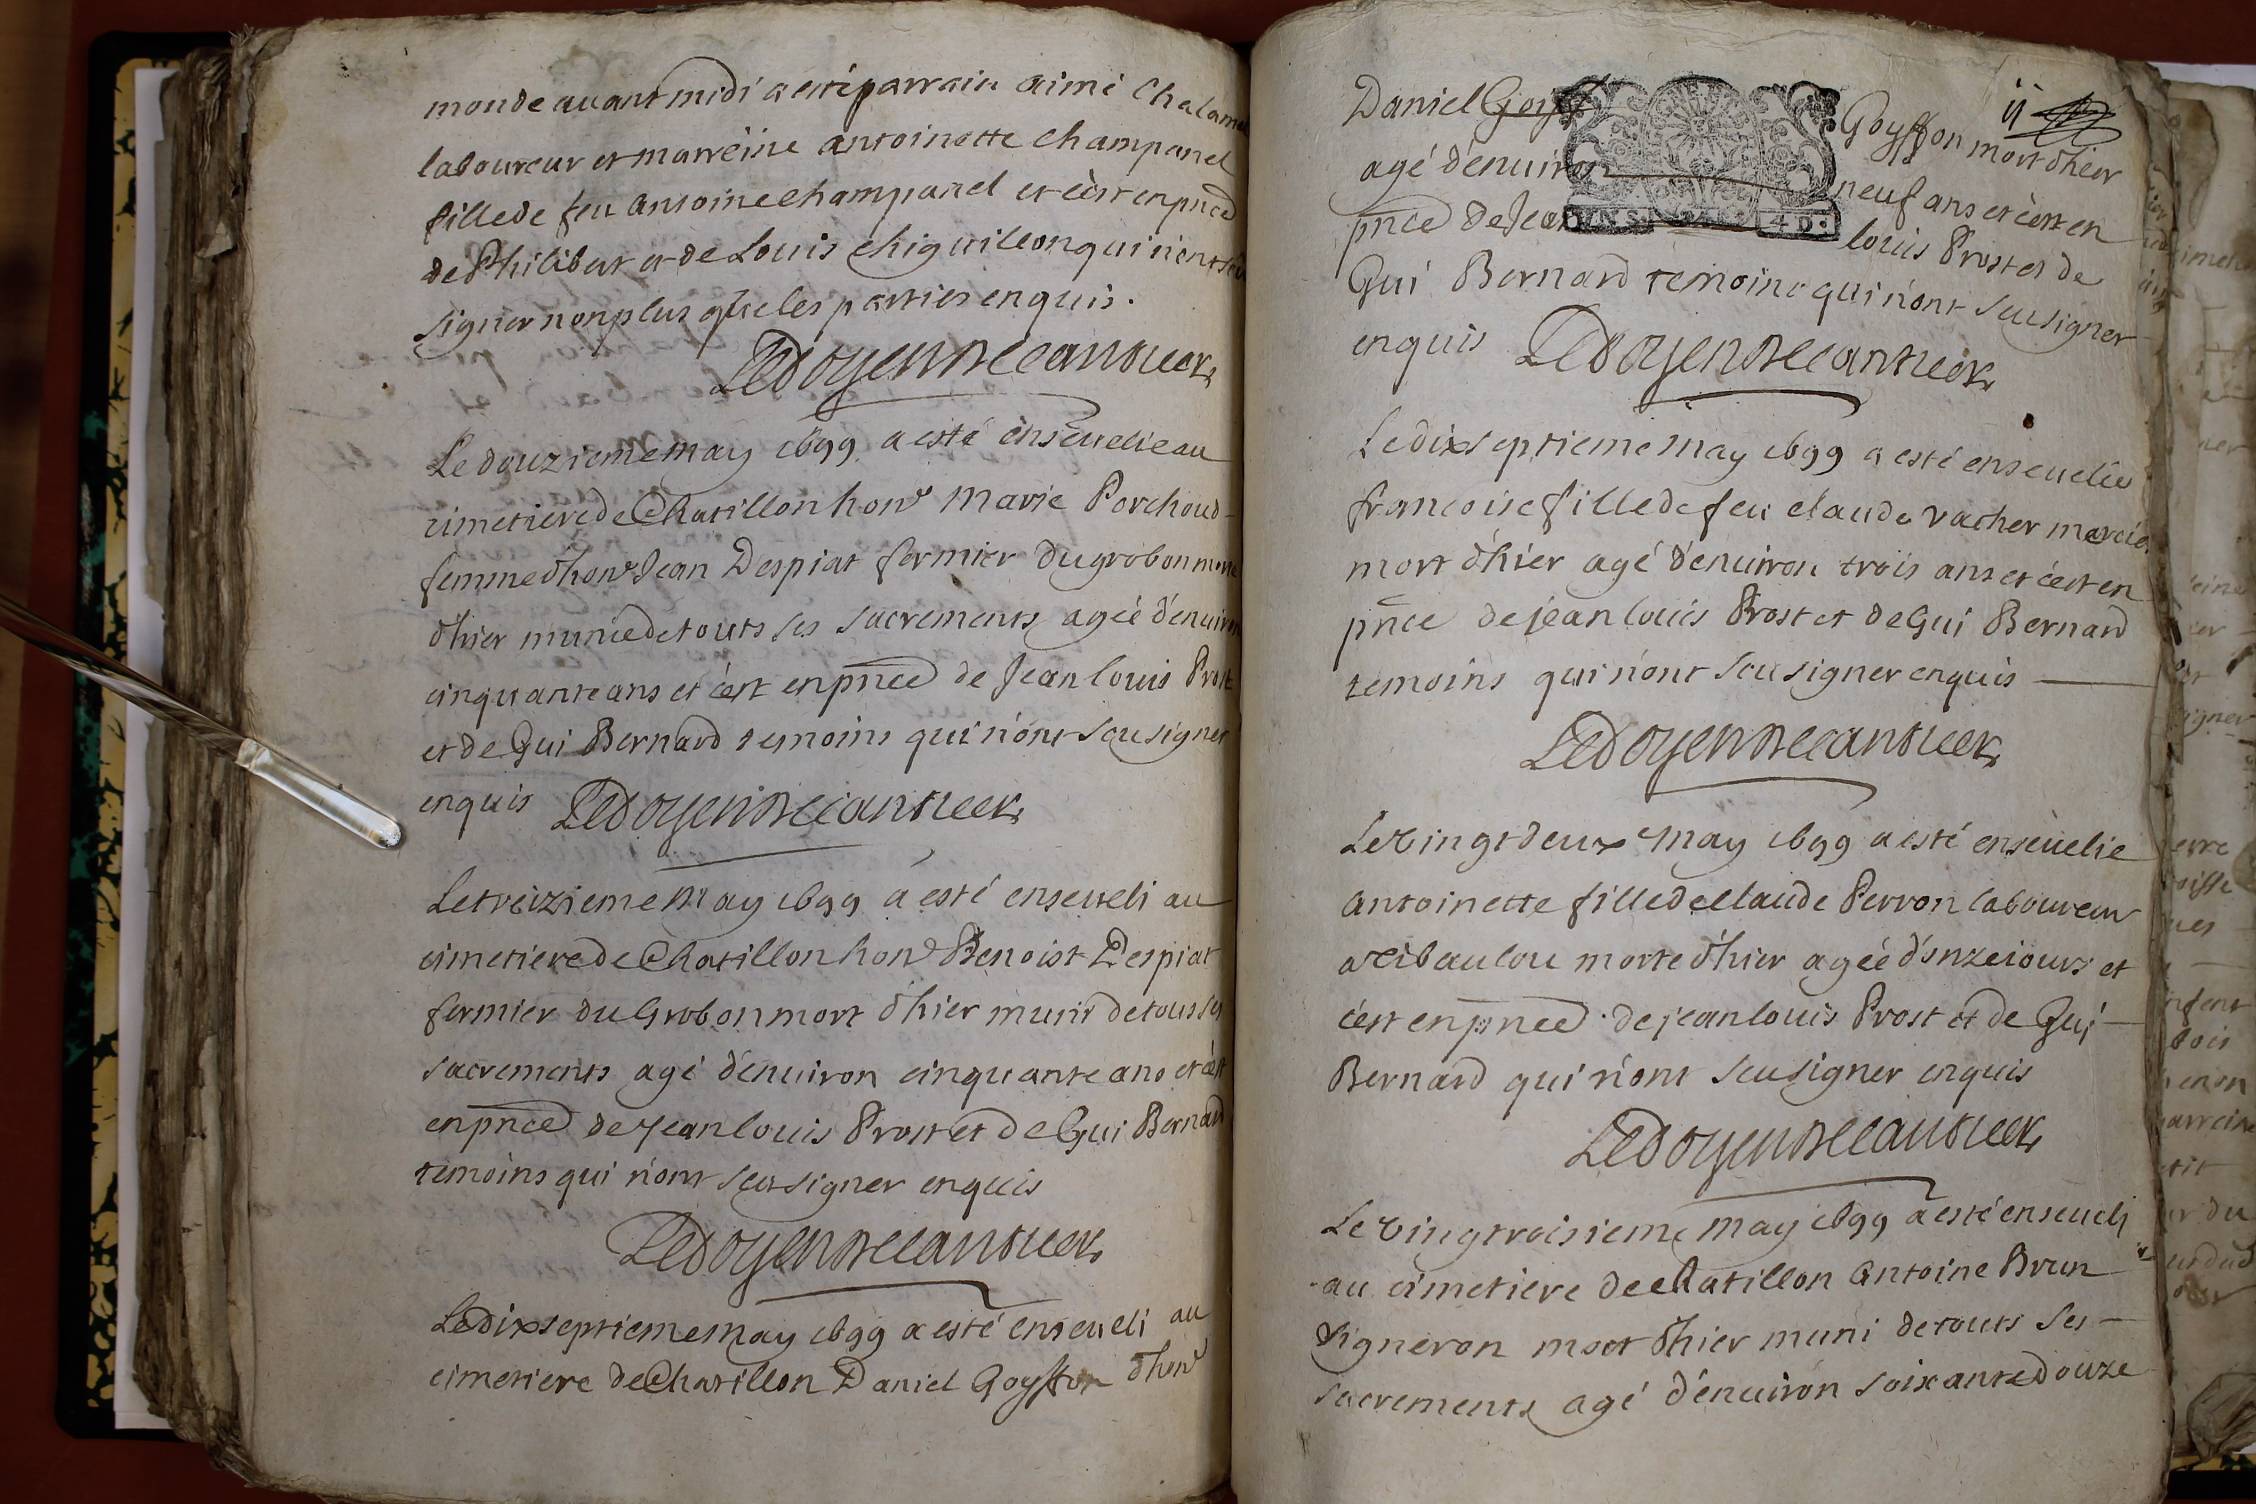 monde avant midi a esté parrain aimé Chalamel
laboureur et marreine antoinette Champanel
fille de feu antoine champanel et c'est en pnce
de Philibert et de Louis chiguilleon qui n'ont sceu
signer non plus que les parties enquis.
Ledoyen de cantueek
Le douzieme may 1699 a esté ensevelie au
cimetiere de Chatillon hone Marie Porchoud
femme d'hone Jean Despiat fermier du grobon morte
d'hier munie de touts ses sacrements agée d'enuiron
cinquante ans et c'est en pnce de Jean louis Prost
et de Gui Bernard temoins qui n'ont sceu signer
enquis
Le treizieme May 1699 a esté enseueli au
cimetiere de Chatillon hone Benoist Despiat
fermier du Grobon mort d'hier muni de tous ses
sacrements agé d'enuiron cinquante ans et c'est
en pnce de Jean louis Prost et de Gui Bernard
temoins qui n'ont sceu signer enquis
Le dixseptieme may 1699 a esté enseueli au
cimetiere de Chatillon Daniel Goyffon d'hone
11
Daniel Goyffon mort d'hier
agé d'enuiron neuf ans et c'est en
pnce de Jean louis Prost et de
Gui Bernard temoins qui n'ont sceu signer
enquis
Le dixseptieme may 1699 a esté enseuelie
francoise fille de feu claude vacher mercier
mort d'hier agé d'enuiron trois ans et c'est en
pnce de jean louis Prost et de Gui Bernard
temoins qui n'ont sceu signer enquis
Le vingtdeux may 1699 a esté enseuelie
antoinette fille de claude Perron laboureur
a cibaulou morte d'hier agée d'onze iours et
c'est en pnce de jean louis Prost et de Gui
Bernard qui n'ont sceu signer enquis
Le vingtroisieme may 1699 a esté enseueli
au cimetiere de chatillon antoine Brun
vigneron mort d'hier muni de touts ses
sacrements agé d'enuiron soixante douze